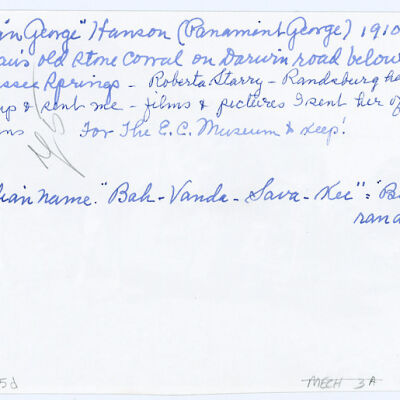 in George" Hanson (Panamint George) 1910
old stone corral on Darwin road below
Springs - Roberta Starry - Randsburg ha
up & sent me - films & pictures I sent her of
ns For The E.C. Museum to keep!
ian name. "Bah - Vanda - Sava - Kee" = "B
ran a
5d
MECH 3A